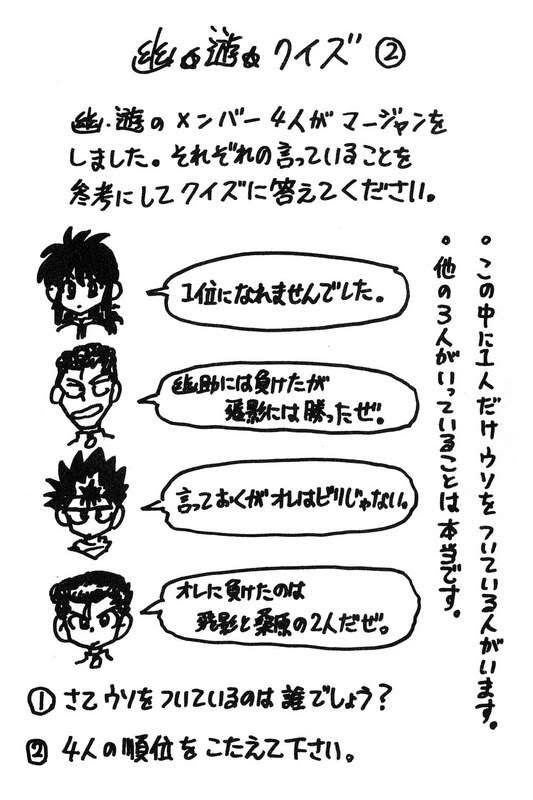 幽☆遊☆クイズ②
幽・遊のメンバー4人がマージャンを
しました。それぞれの言っていることを
参考にしてクイズに答えてください。
1位になれませんでした。
幽助には負けたが
飛影には勝ったぜ。
言っておくがオレはビリじゃない。
オレに負けたのは
飛影と桑原の2人だぜ。
• この中に1人だけウソをついている人がいます。
• 他の3人がいっていることは本当です。
① さてウソをついているのは誰でしょう?
② 4人の順位をこたえて下さい。